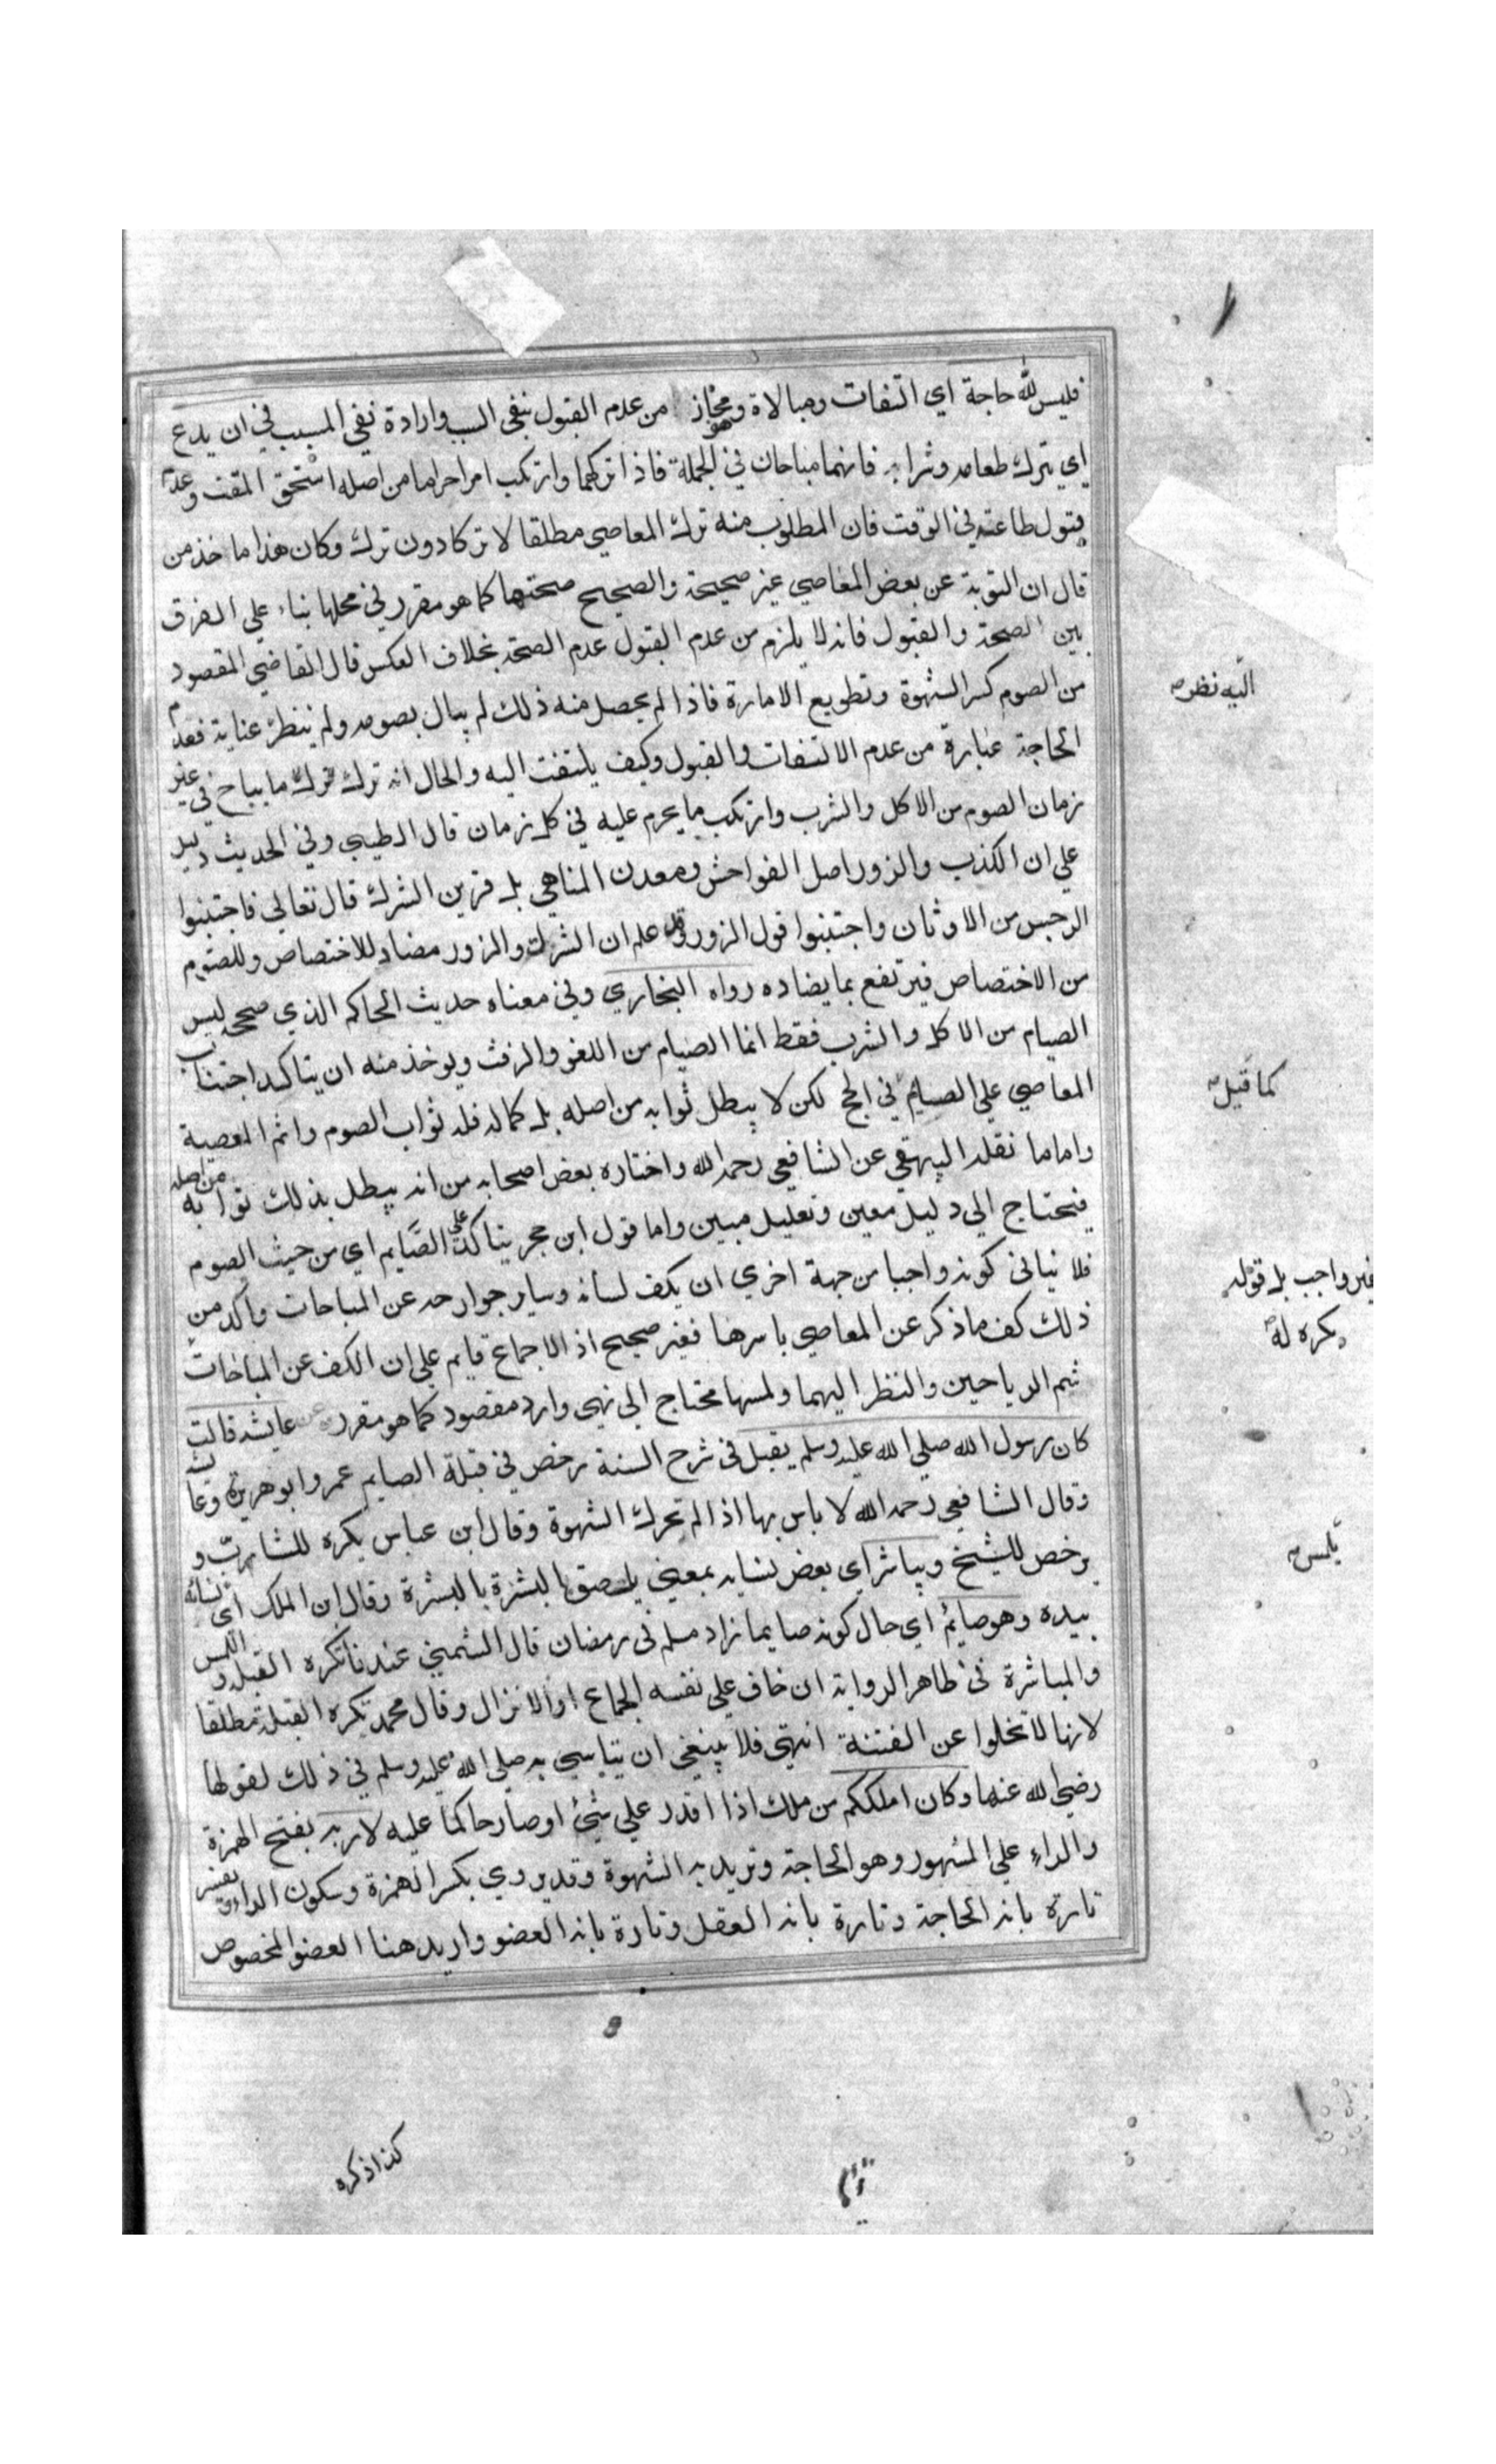 فليس لله حاجة اي التفات ومبالاة وهو مجاز من عدم القبول بنفي السبب وارادة نفي المسبب في ان يدع
اي يترك طعامه وشرابه فانهما مباحان في الجملة فاذا تركهما وارتكب امرا حراما من اصله استحق المقت وعدم
قبول طاعته في الوقت فان المطلوب منه ترك المعاصي مطلقا لا تركا دون ترك وكان هذا ماخذ من
قال ان التوبة عن بعض المعاصي غير صحيحة والصحيح صحتها كما هو مقرر في محلها بناء علي الفرق
بين الصحة والقبول فانه لا يلزم من عدم القبول عدم الصحة بخلاف العكس قال القاضي المقصود
من الصوم كسر الشهوة وتطويع الامارة فاذا لم يحصل منه ذلك لم يبال بصومه ولم ينظر عناية فعدم
الحاجة عبارة من عدم الالتفات والقبول وكيف يلتفت اليه والحال انه ترك ما يباح في غير
زمان الصوم من الاكل والشرب وارتكب ما يحرم عليه في كل زمان قال الطيبي وفي الحديث دليل
علي ان الكذب والزور اصل الفواحش ومعدن المناهي بل قرين الشرك قال تعالي فاجتنبوا
الرجس من الاوثان واجتنبوا قول الزور وقد علم ان الشرك والزور مضاد للاختصاص وللصوم
من الاختصاص فيرتفع بما يضاده رواه البخاري وفي معناه حديث الحاكم الذي صححه ليس
الصيام من الاكل والشرب فقط انما الصيام من اللغو والرفث ويوخذ منه ان يتاكد اجتناب
المعاصي علي الصايم في الحج لكن لا يبطل ثوابه من اصله بل كماله فله ثواب الصوم واثم المعصية
واما ما نقله البيهقي عن الشافعي رحمه الله واختاره بعض اصحابه من انه يبطل بذلك ثوابه من اصله
فيحتاج الي دليل معين وتعليل مبين واما قول ابن حجر يتاكد علي الصَّايم اي من حيث الصوم
فلا ينافي كونه واجبا من جهة اخري ان يكف لسانه وساير جوارحه عن المباحات واكد من
ذلك كف ما ذكر عن المعاصي باسرها فغير صحيح اذ الاجماع قايم علي ان الكف عن المباحات
شم الرياحين والنظر اليهما ولمسها محتاج الي نهي وارد مقصود كما هو مقرر عن عايشة قالت
كان رسول الله صلي الله عليه وسلم يقبل في شرح السنة رخص في قبلة الصايم عمر وابو هريرة وعايشة
وقال الشافعي رحمه الله لا باس بها اذا لم تحرك الشهوة وقال ابن عباس يكره للشاب و
يرخص للشيخ ويباشر اي بعض نسايه بمعني يلصق البشرة بالبشرة وقال ابن الملك اي نسائه
بيده وهو صايمٌ اي حال كونه صايما زاد مسلم في رمضان قال الشمني عندنا تكره القبلة واللمس
والمباشرة في ظاهر الرواية ان خاف علي نفسه الجماع او الانزال وقال محمد تكره القبلة مطلقا
لانها لا تخلوا عن الفتنة انتهي فلا ينبغي ان يتاسي به صلي الله عليه وسلم في ذلك لقولها
رضي الله عنها وكان املككم من ملك اذا اقدر علي شيئ او صار حاكما عليه لاربه بفتح الهمزة
والراء علي المشهور وهو الحاجة وتريد به الشهوة وقد يروي بكسر الهمزة وسكون الراء ويفسر
تارة بانه الحاجة وتارة بانه العقل وتارة بانه العضو واريد هنا العضو المخصوص
اليه نظر
كما قيل
غير واجب بل قوله
يكره له
يلمس
كذا ذكره